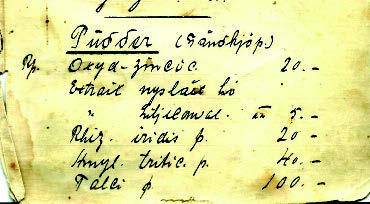 Pùdder (Håndkjøp)
Rp. Oxyd-zincic 20.-
Extrait nyslået hö
" āā 5.-
Rhiz. iridis p. 20 -
Amyl. tritic. p. 40.-
Talci p 100.-